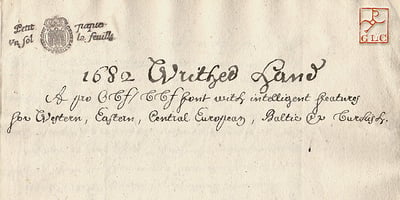 Petit papier
va sol la feuille
GLC
1682 Writhed Hand
A pro OTF/TTF font with intelligent features
for Western, Eastern, Central European, Baltic & Turkish.